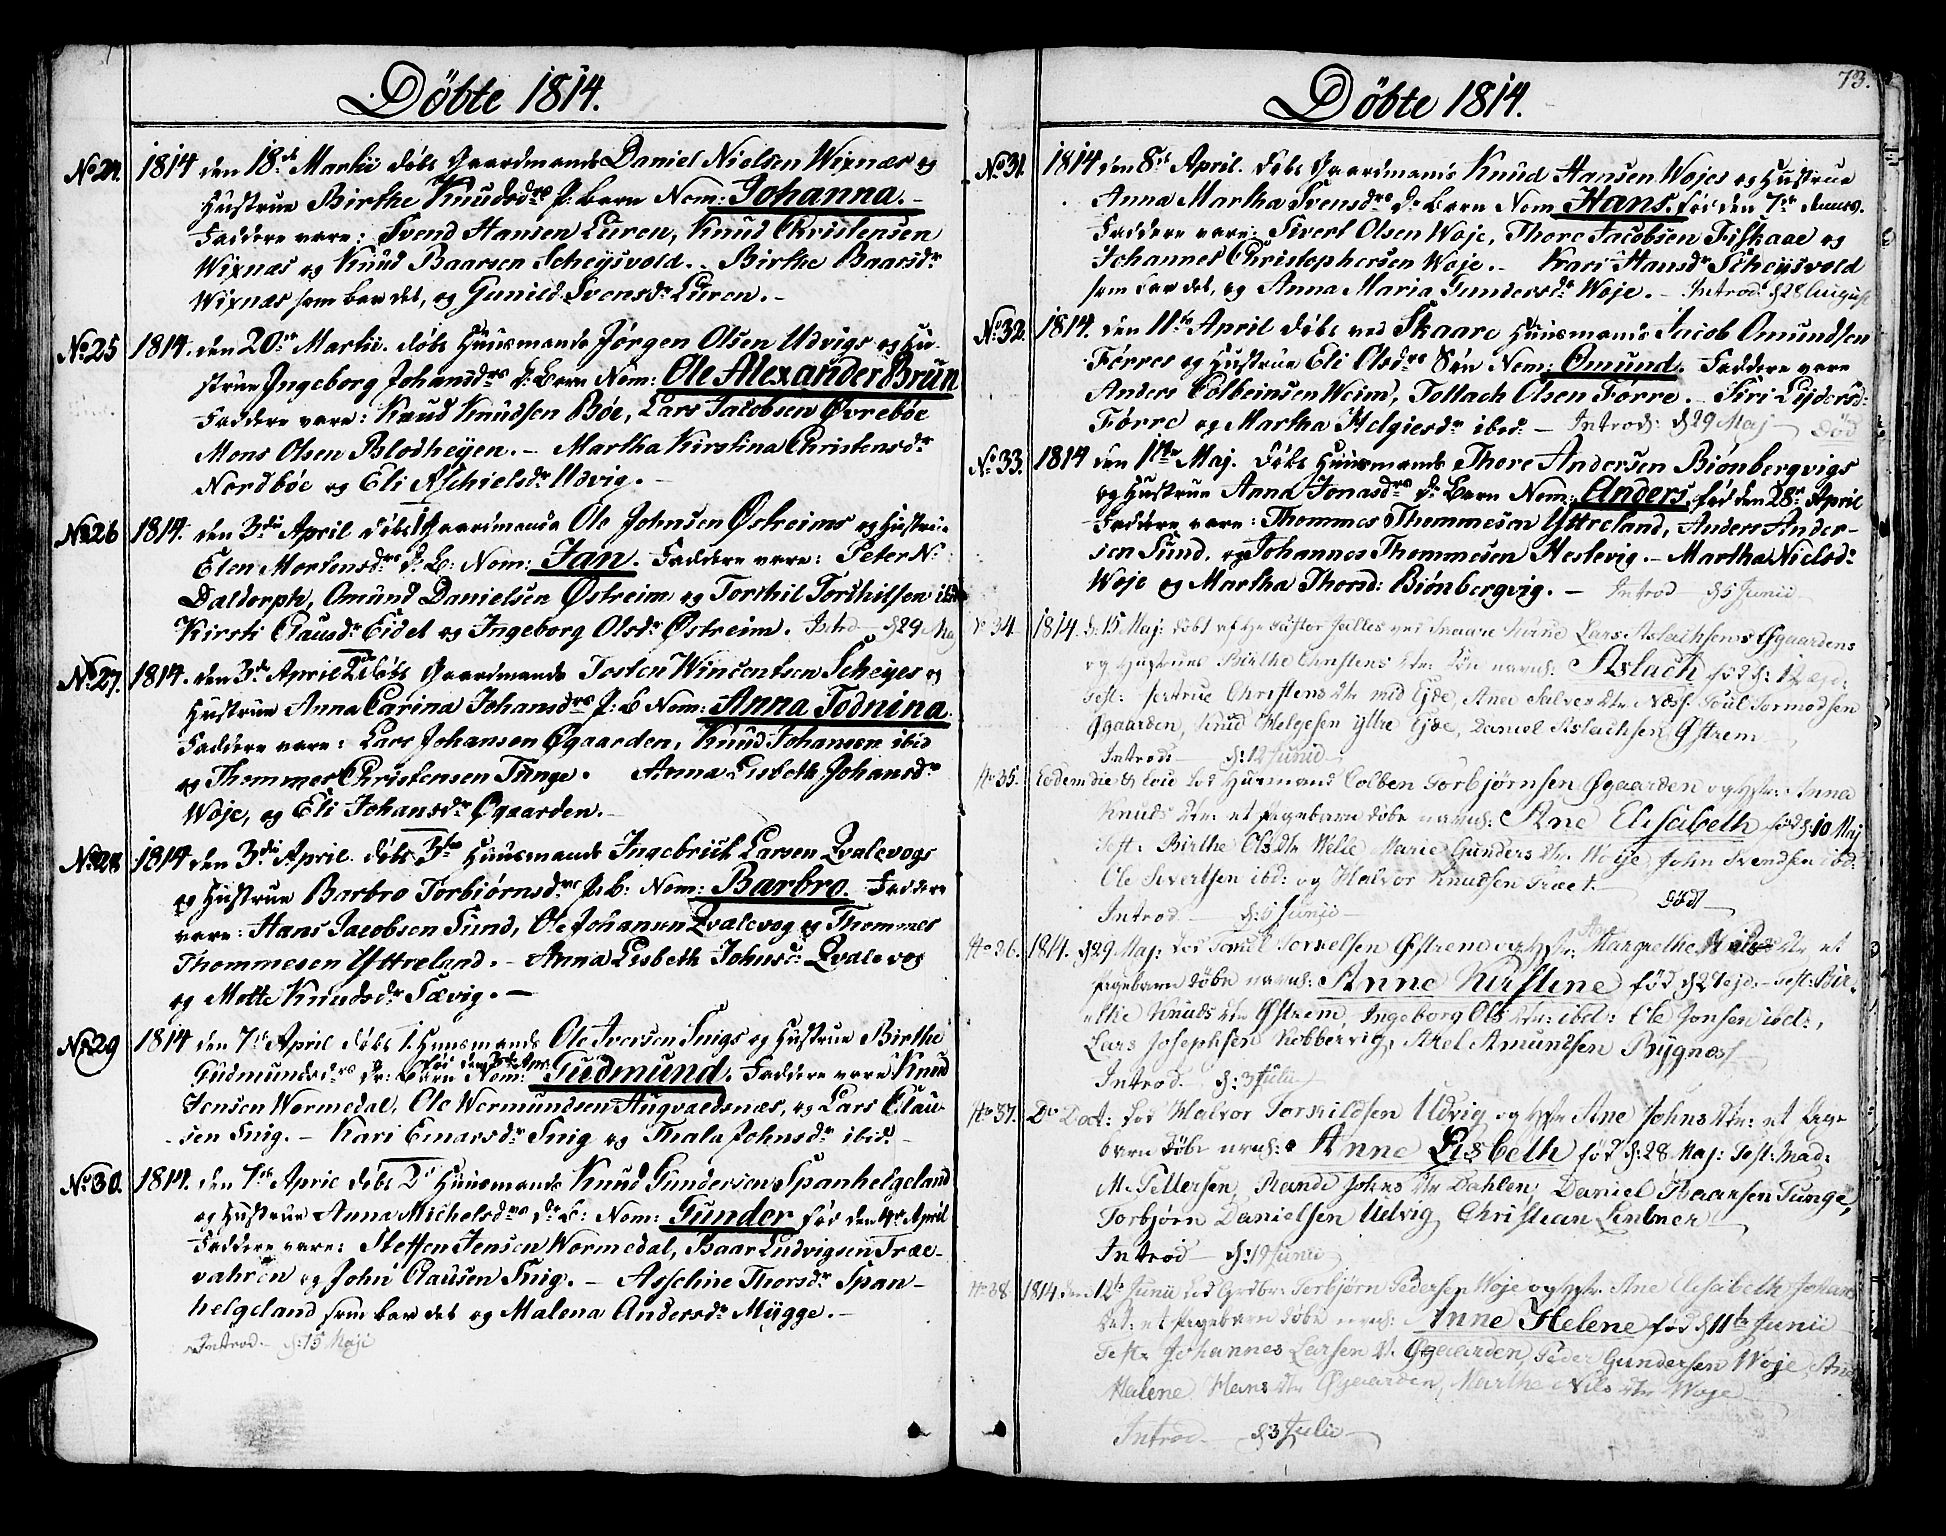 Döbte 1814.
No 24. 1814 den 18de Martii döbt Gaardmands Daniel Nielsen Wixnæs og
Hustrue Birthe Knudsdrs P: Barn Nom: Johanna. -
Faddere vare: Svend Hansen Luren, Knud Christensen
Wixnæs og Knud Baarsen Scheysvold. - Birthe Baarsdr
Wixnæs som bar det, og Gunild Svensdr Luren. -
No 25 1814. den 20de Martii. döbt Huusmands Jørgen Olsen Udvigs og Hu-
strue Ingeborg Johansdrs D: Barn Nom: Ole Alexander Brun
Faddere vare: Knud Knudsen Bøe, Lars Jacobsen Øvrebøe
Mons Olsen Blodheyen. - Martha Kirstina Christensdr
Nordbøe og Eli Aschielsdr Udvig. -
No 26 1814. den 3die April döbt 1 Gaardmands Ole Johnsen Østreims og Hustrue
Elen Mortensdrs D: B: Nom: Jan. Faddere vare: Peter N:
Daldorph, Omund Danielsen Østreim og Torkil Torkilsen ibid
Kirsti Clausdr Eidet og Ingeborg Olsdr Østreim. Introd d 29 Maj
No 27. 1814. den 3die April 2 döbt Gaardmands Tosten Wincentsen Scheyes og
Hustrue Anna Carina Johansdrs P: B Nom: Anna Todnina.
Faddere vare: Lars Johansen Øgaarden, Knud Johansen ibid
og Thommes Christensen Tunge. Anna Lisbeth Johansdr
Woje, og Eli Johansdr Øgaarden. -
No 28 1814 den 3die April. döbt 3 Huusmands Ingebrich Larsen Qvalevogs
og Hustrue Barbro Torbiørnsdrs P: b: Nom: Barbro. Faddere
vare: Hans Jacobsen Sund, Ole Johansen Qvalevog og Thommes
Thommesen Yttreland. - Anna Lisbeth Johnsd: Qvalevog
og Mette Knudsdr Sævig. -
No 29 1814 den 7de April döbt 1 Huusmands Ole Iversen Snigs og Hustrue Birthe
Gudmundsdrs Dr: Barn Nom: Gudmund. Faddere vare Knud
Jensen Wormedal, Ole Wermundsen Augvaldsnæs, og Lars Clau-
sen Snig. - Kari Emarsdr Snig og Thala Johnsdr ibid. -
No 30. 1814. den 7de April döbt 2 Huusmands Knud Gundersens Spanhelgeland
og Hustrue Anna Michelsdrs D: b: Nom: Gunder föd den 4de April
Faddere vare: Steffen Jensen Wormedal, Baar Ludvigsen Træe-
vahren og John Clausen Snig. - Asseline Thorsdr Span-
helgeland som bar det og Malena Andersdr Mygge. -
Introd. - d: 15 Maji
73.
Döbte 1814.
No 31. 1814 den 8de April. döbt Gaardmands Knud Hansen Wojes og Hustrue
Anna Martha Svensdrs D: Barn Nom Hans. föd den 7de
Faddere vare: Sivert Olsen Woje, Thore Jacobsen Fiskaae og
Johannes Christophersen Woje. - Kari Hansdr Scheysvold
som bar det, og Anna Maria Gundersdr Woje. - Introd: d 28 August
No 32. 1814. den 11te April döbt ved Skaare Huusmands Jacob Omundsen
Førres og Hustrue Eli Olsdrs Sön Nom: Omund. Faddere vare
Anders Colbeinsen Weim, Tollach Olsen Førre. - Siri
Førre og Martha Helgiesdr ibid. - Introd: d 29 Maj Död
No 33. 1814 den 1ste Maj. döbt Huusmands Thore Andersen Biønbergvigs
og Hustrue Anna Jonasdrs D: Barn Nom: Anders. föd den 28de April
Faddere vare: Thommes Thommesen Yttreland, Anders Ander-
sen Sund. og Johannes Thommesen Heslevig. - Martha Nielsdr
Woje og Martha Thorsd: Biønbergvig. - Introd d 5 Junii
No 34 1814. d: 15 Maj: döbt af ved Skaare Kirke Lars Aslachsens Øgaardens
og Hustrues Birthe Christens dtr: Sön navnl: Aslach föd d: 12
Test: Christens dtr nid Ejde, Ane Salves dtr Næss. Poul Tormodsen
Øgaarden, Knud Helgesen yttre Ejde, Daniel Aslachsen Østrem
Introd d: 12 Junii
No 35. Eodem die & loco lod Husmand Colben Torbjørnsen Øgaarden og Hstr: Anna
Knuds dtr: et Pigebarn döbe navnl: Ane Elisabeth föd d: 10 Maj
Test: Birthe Ols dtr Marie Gunders dtr Woje, John Svendsen ibd:
Ole Severtsen ibd: og Halvor Knudsen Træet.
Introd. d: 5 Junii Död
No 36. 1814. d 29 Maj: lod Østrem og Hstr: Margrethe Nils dtr et
Pigebarn döbe navnl: Anne Kirstine föd d 24 ejd: - Test: Bir-
Knuds dtr Østrem, Ingeborg Ols dtr: ibd: Ole Jonsen ibd:,
Lars Josephsen Kobbervig, Axel Amundsen Bygnæss
Introd. d: 3 Julii
No 37. Do Dat: lod Halvor Torkildsen Udvig og Hstr Ane Johns dtr: et Pige
barn döbe navnl: Anne Lisbeth föd d: 28 Maj: Test: Mad:
M. Pettersen, Rande Johns dtr Dahlen, Daniel Baarsen Tunge,
Torbjørn Danielsen Udvig, Christian Lintner
Introd d: 19 Junii
No 38 1814 den 12te Junii lod Grdbr. Torbjørn Pedersen Woje og Hstr. Ane Elisabeth Johans
dtr: et Pigebarn döbe navnl: Anne Helene föd d 11te Junii
Test: Johannes Larsen V. Øgaarden, Peder Gundersen Woje, Ane
Malene Hans dtr Øgaarden, Marthe Nils dtr Woje
Introd d 3 Julii